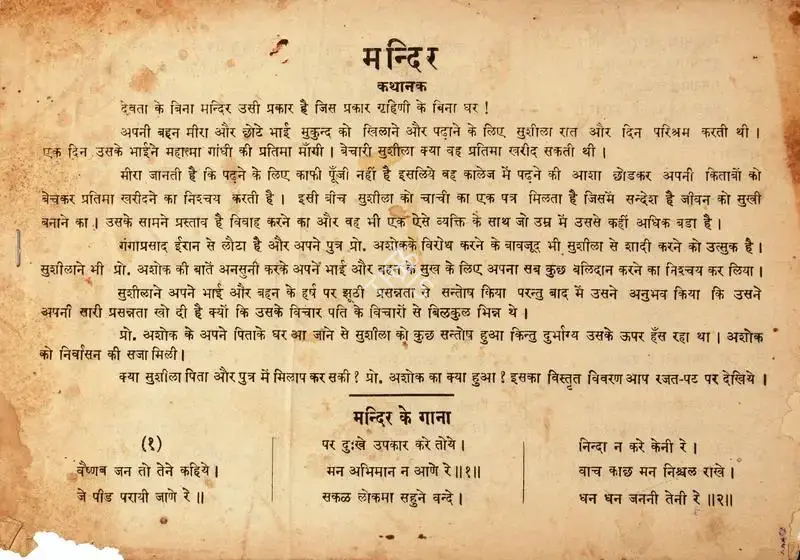 मन्दिर
कथानक
देवता के बिना मन्दिर उसी प्रकार है जिस प्रकार ग्रहिणी के बिना घर !
अपनी बहन मीरा और छोटे भाई मुकुन्द को खिलाने और पढ़ाने के लिए सुशीला रात और दिन परिश्रम करती थी ।
एक दिन उसके भाईने महात्मा गांधी की प्रतिमा माँगी । बेचारी सुशीला क्या वह प्रतिमा खरीद सकती थी ।
मीरा जानती है कि पढ़ने के लिए काफी पूँजी नहीं है इसलिये वह कालेज में पढ़ने की आशा छोडकर अपनी किताबों को
बेचकर प्रतिमा खरीदने का निश्चय करती है । इसी बीच सुशीला को चाची का एक पत्र मिलता है जिसमें सन्देश है जीवन को सुखी
बनाने का । उसके सामने प्रस्ताव है विवाह करने का और वह भी एक ऐसे व्यक्ति के साथ जो उम्र में उससे कहीं अधिक बडा है ।
गंगाप्रसाद ईरान से लौटा है और अपने पुत्र प्रो. अशोकके विरोध करने के बावजूद भी सुशीला से शादी करने को उत्सुक है ।
सुशीलाने भी प्रो. अशोक की बातें अनसुनी करके अपने भाई और बहन के सुख के लिए अपना सब कुछ बलिदान करने का निश्चय कर लिया ।
सुशीलाने अपने भाई और बहन के हर्ष पर झूठी प्रसन्नता से सन्तोष किया परन्तु बाद में उसने अनुभव किया कि उसने
अपनी सारी प्रसन्नता खो दी है क्यों कि उसके विचार पति के विचारों से बिलकुल भिन्न थे ।
प्रो. अशोक के अपने पिताके घर आ जाने से सुशीला को कुछ सन्तोष हुआ किन्तु दुर्भाग्य उसके ऊपर हँस रहा था । अशोक
को निर्वासन की सजा मिली ।
क्या सुशीला पिता और पुत्र में मिलाप कर सकी ? प्रो. अशोक का क्या हुआ ? इसका विस्तृत विवरण आप रजत-पट पर देखिये ।
मन्दिर के गाना
(१)
वैष्णब जन तो तेने कहिये ।
जे पीड परायी जाणे रे ॥
पर दुःखे उपकार करे तोये ।
मन अभिमान न आणे रे ॥१॥
सकळ लोकमा सहुने वन्दे ।
निन्दा न करे केनी रे ।
वाच काछ मन निश्चल राखे ।
धन धन जननी तेनी रे ॥२॥